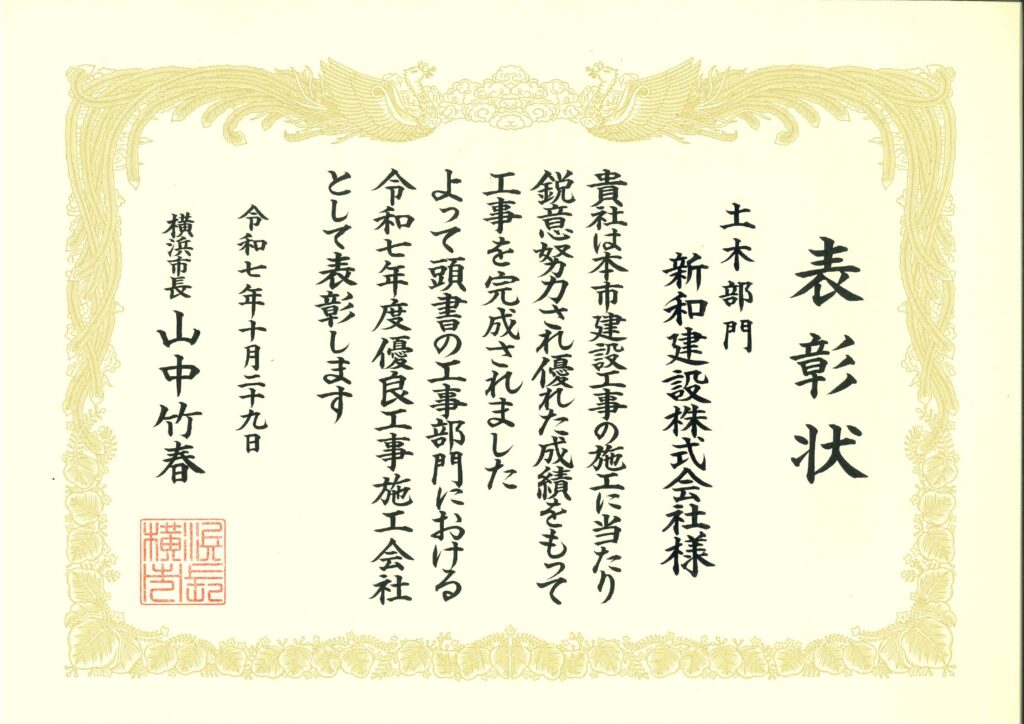 表彰状
土木部門
新和建設株式会社様
貴社は本市建設工事の施工に当たり
鋭意努力され優れた成績をもって
工事を完成されました
よって頭書の工事部門における
令和七年度優良工事施工会社
として表彰します
令和七年十月二十九日
横浜市長 山中竹春
横浜市長